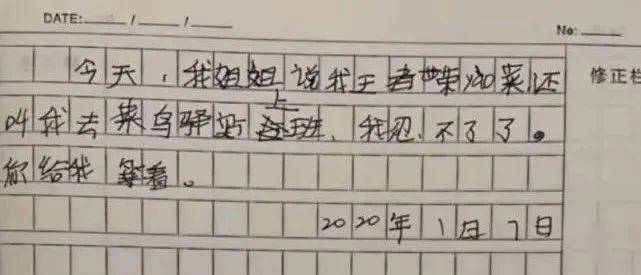 DATE: / /
No:
修正栏
今天，我姐姐说我王者荣耀菜还
叫我去菜鸟驿站上班，我忍不了了。
你给我等着。
2020年1月7日